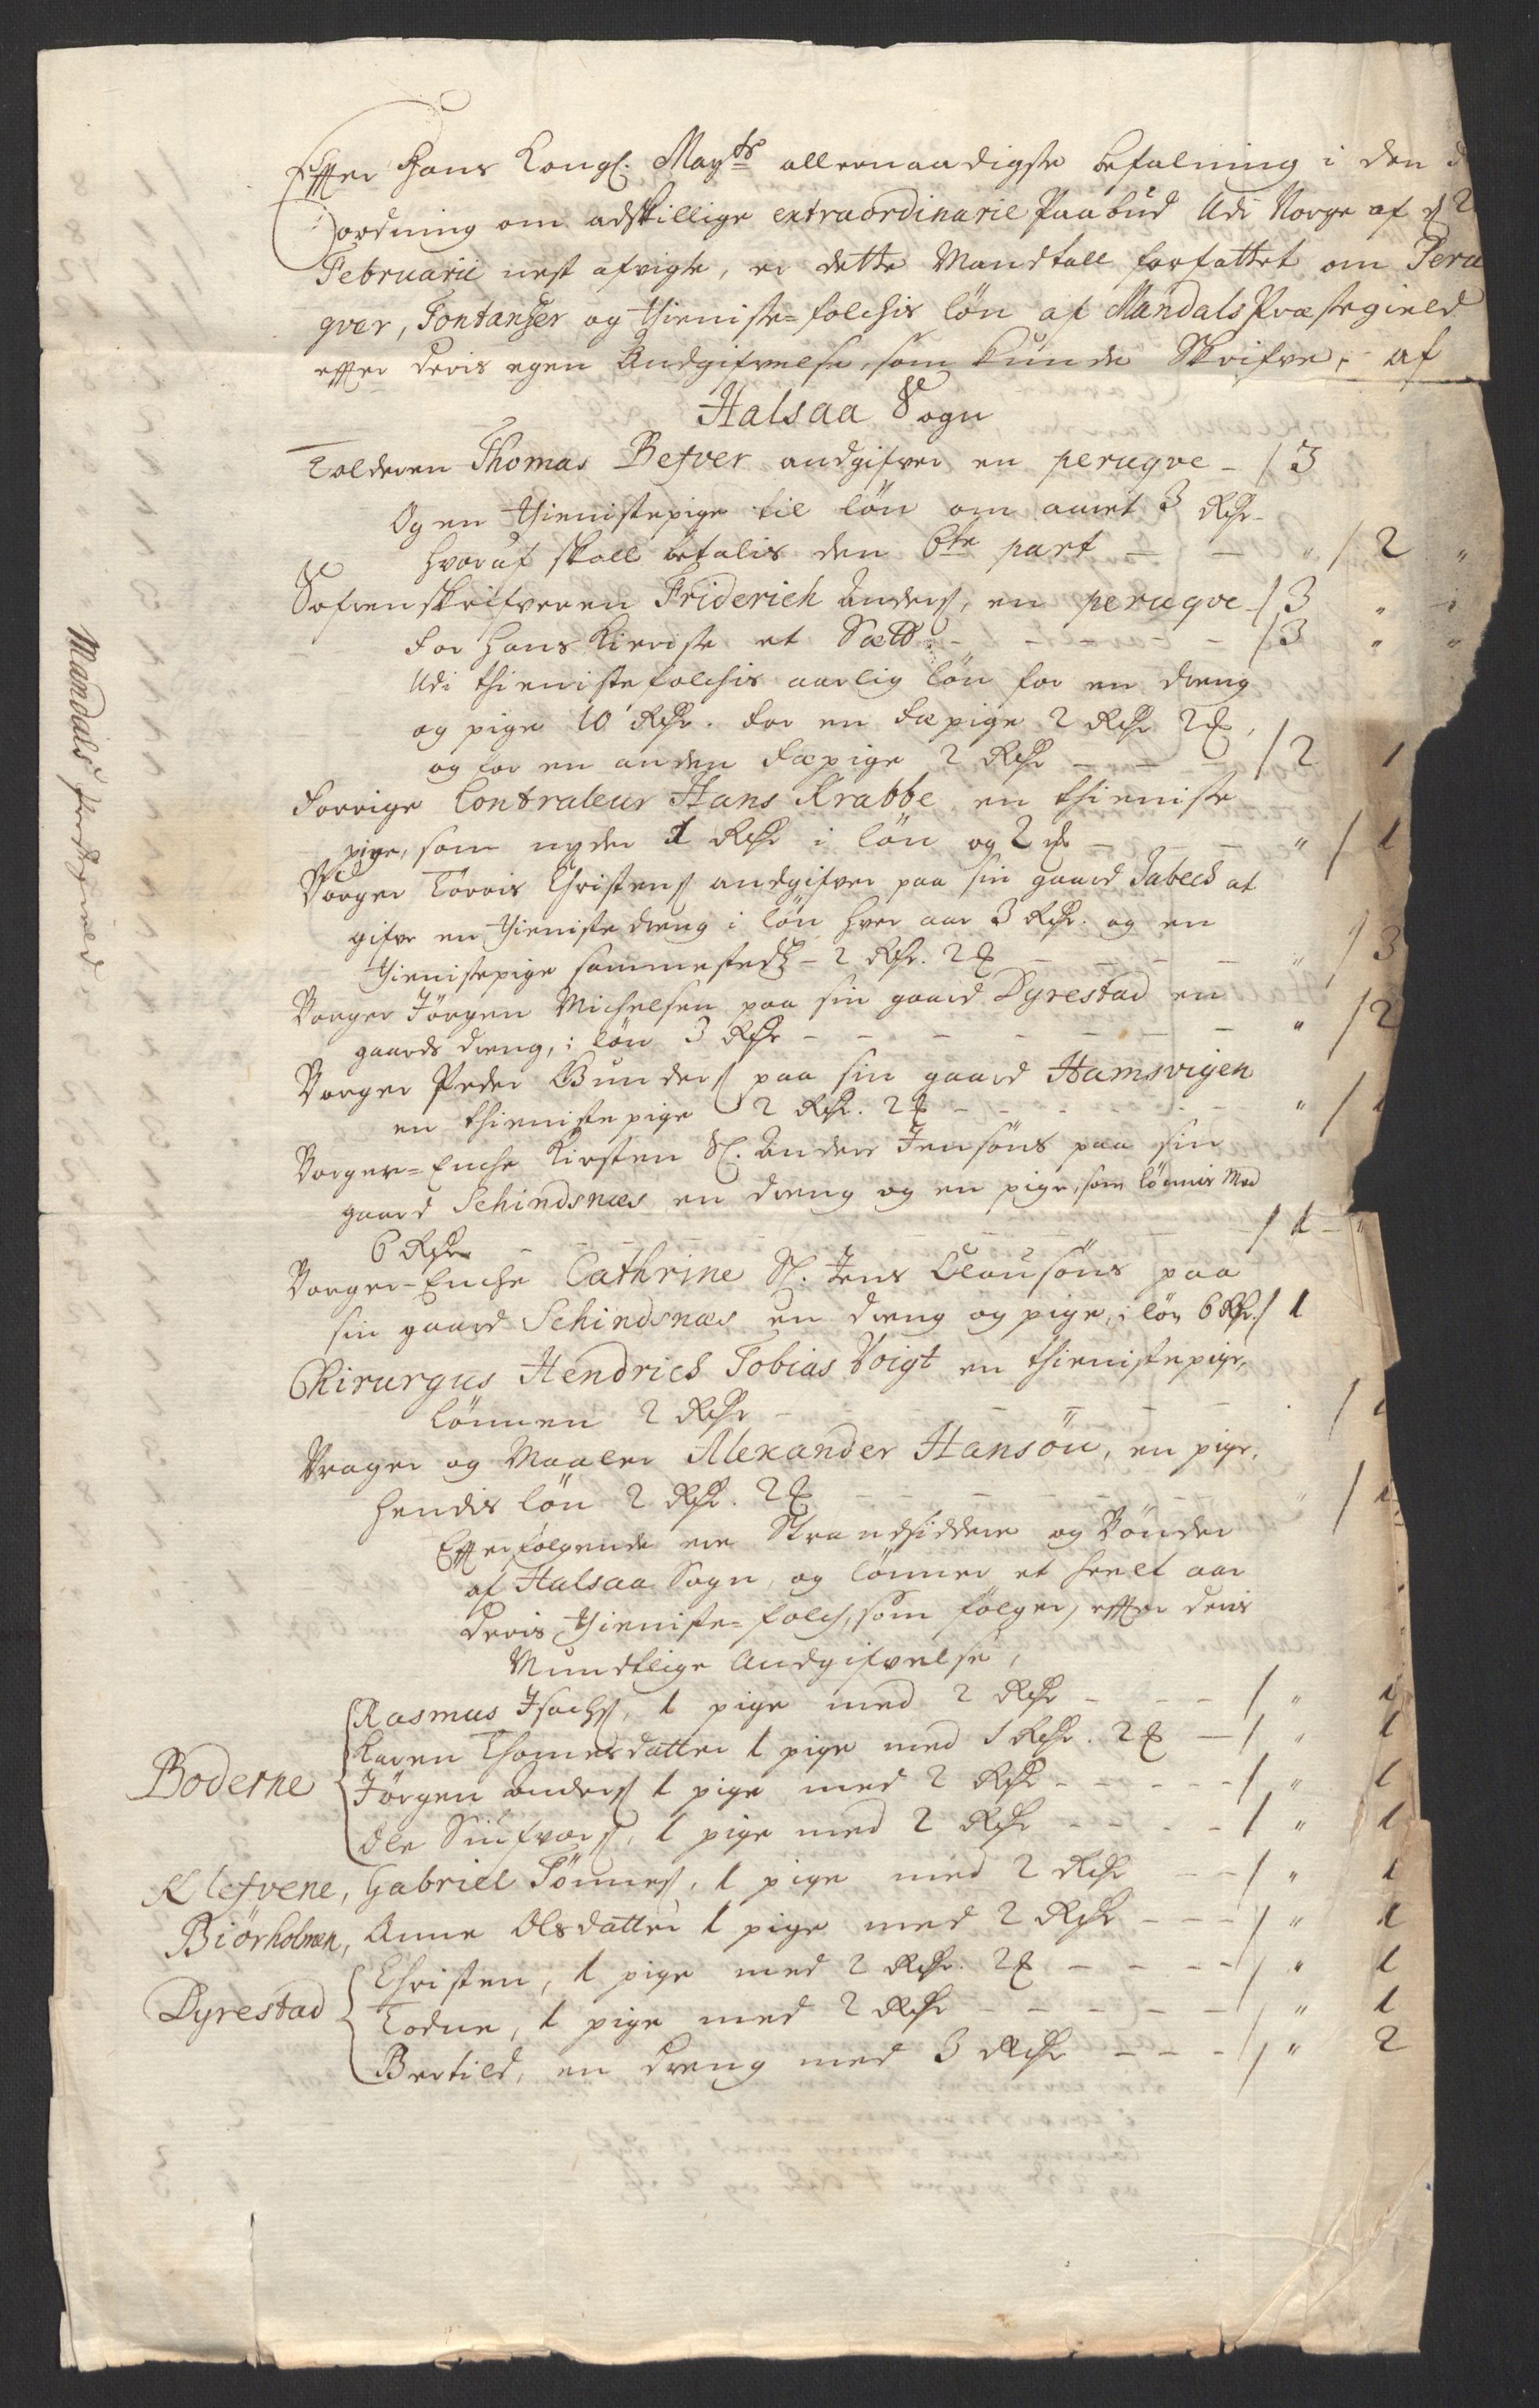 Effter Hans Kongl. Mayts allernaadigste befalning i den
Forordning om adskillige extraordinarie Paabud Udi Norge af d 2
Februarii nest afvigte, er dette Mandtall forfattet om Peru
qver, Fontanger og thieniste-folchis løn af Mandals Præstegield
effter deris egen Andgifvelse, som kunde Skrifve, af
Halsaa Sogn
Tolderen Thomas Befver andgifver en peruqve - / 3
Og en thienistepige til løn om aaret 3 Rdr
hvoraf skall betalis den 6te part - - " / 2 "
Sofrenskrifveren Friderich Anders, en peruqve / 3 "
for hans Kieriste et Sætt - - - - / 3 " "
Udi thienistefolchis aarlig løn for en dreng
og pige 10 Rdr. for en Fæpige 2 Rdr 2
og for en anden Fæpige 2 Rdr - - - / 2 1
Forrige Contraleur Hans Krabbe en thieniste
pige, som nyder 1 Rdr i løn og 2 - - - " / 1
Borger Tørris Christens andgifver paa sin gaard Jabech at
gifve en thieniste dreng i løn hver aar 3 Rdr. og en
thienistepige sammesteds - 2 Rdr. 2 - - - - " / 3
Borger Jørgen Michelsen paa sin gaard Dyrestad en
gaards dreng, i løn 3 Rdr - - - - - - - " / 2
Borger Peder Gunders paa sin gaard Hamsvigen
en thienistepige 2 Rdr. 2 - - - - - - " /
Borger-Enche Kirsten Sl. Anders Jensøns paa sin
gaard Schindsnæs en dreng og en pige, som lønnis Med
6 Rdr - - - - - / 1 - "
Borger-Enche Cathrine Sl. Jens Clausøns paa
sin gaard Schindsnæs en dreng og pige, i løn 6 Rdr. / 1
Chirurgus Hendrich Tobias Voigt en thienistepige,
lønnen 2 Rdr - - - - - /
Vrager og Maaler Alexander Hansøn, en pige,
hendis løn 2 Rdr. 2 - - - - - " /
Effterfølgende ere Strandsiddere og Bønder
af Halsaa Sogn, og lønner et heelt aar
deris thieniste-folch, som følger, effter deris
Mundtlige Andgifvelse,
Boderne
Rasmus Isachs, 1 pige med 2 Rdr - - - / " 1
Karen Thomesdatter 1 pige med 1 Rdr. 2 - / " 1
Jørgen Anders 1 pige med 2 Rdr - - - - - / " 1
Ole Siufvors, 1 pige med 2 Rdr - - - - - / " 1
Klefvene, Gabriel Tønnes, 1 pige med 2 Rdr - - / " 1
Biørholmen, Anne Olsdatter 1 pige med 2 Rdr - - - / " 1
Dyrestad
Christen, 1 pige med 2 Rdr. 2 - - - - / " 1
Todne, 1 pige med 2 Rdr - - - - - / " 1
Bertild, en dreng med 3 Rdr - - - / " 2
Mandals Præstegield